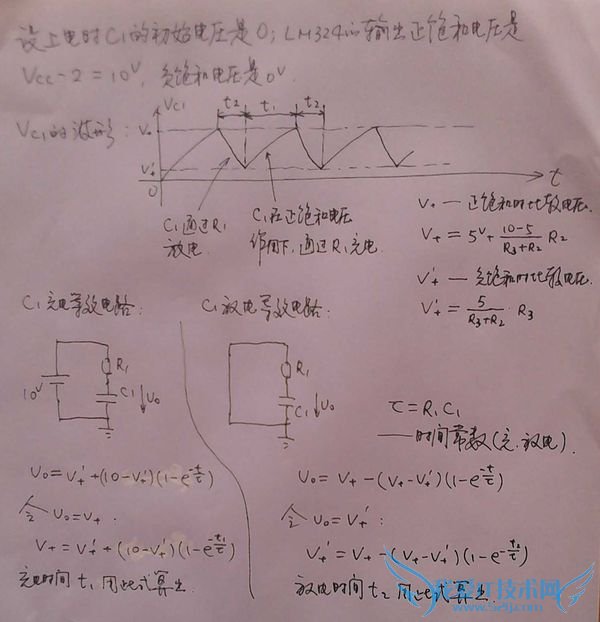 设上电时C1的初始电压是0;LM324的输出正饱和电压是
Vcc-2=10V,负饱和电压是0V.
Vc1的波形:
Vc1
t2 t1 t2
V+
V+'
0
t
C1通过R1
放电.
C1在正饱和电压
作用下,通过R1充电.
V+ — 正饱和时比较电压.
V+ = 5V + (10-5)/(R3+R2) R2
V+' — 负饱和时比较电压.
V+' = 5/(R3+R2) · R3
C1充电等效电路:
C1放电等效电路:
10V
R1
C1 ↓U0
R1
C1 ↓U0
τ=R1C1
——时间常数(充.放电).
U0=V+'+(10-V+')(1-e^(-t/τ))
令U0=V+.
V+=V+'+(10-V+')(1-e^(-t1/τ))
充电时间t1用此式算出.
U0=V+-(V+-V+')(1-e^(-t/τ))
令U0=V+':
V+'=V+-(V+-V+')(1-e^(-t2/τ))
放电时间t2用此式算出.
我爱IT技术网
www.52ij.com